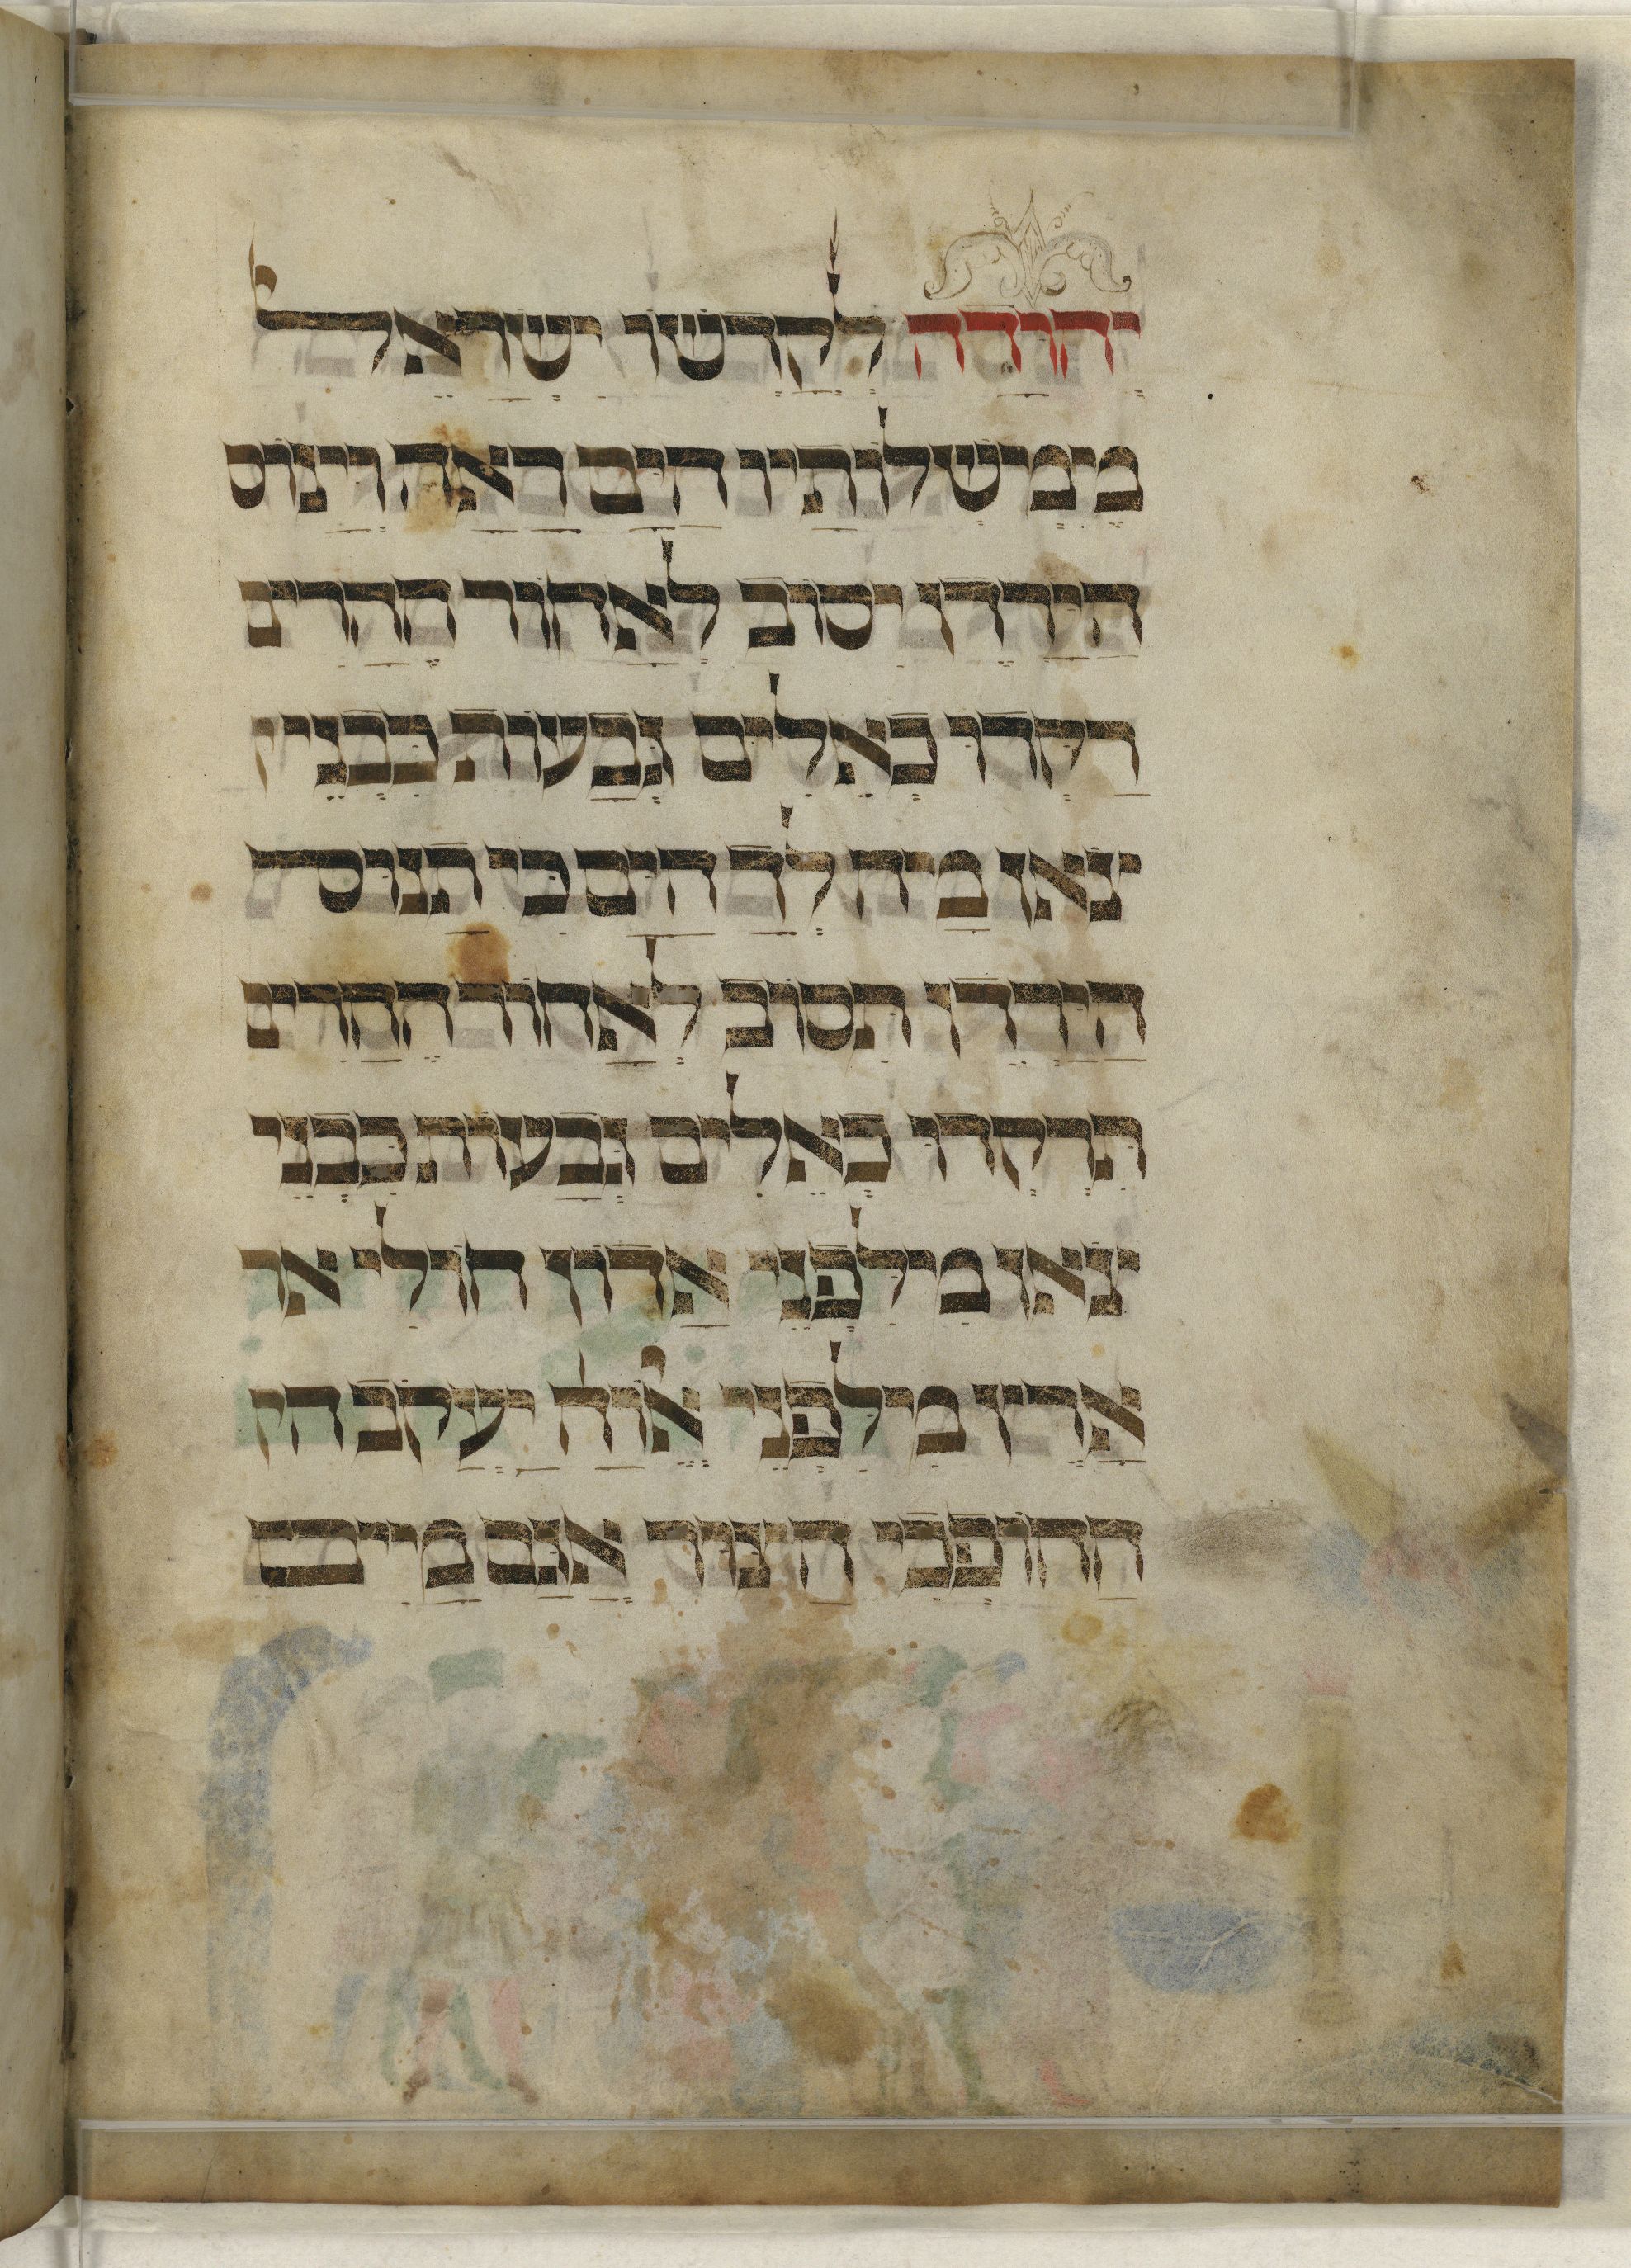 יְהוּדָה לְקָדְשׁוֹ יִשְׂרָאֵל
מַמְשְׁלוֹתָיו הַיָּם רָאָה וַיָּנוֹס
הַיַּרְדֵּן יִסּוֹב לְאָחוֹר הֶהָרִים
רָקְדוּ כְאֵלִים גְּבָעוֹת כִּבְנֵי
צֹאן מַה לְּךָ הַיָּם כִּי תָנוּס
הַיַּרְדֵּן תִּסּוֹב לְאָחוֹר הֶהָרִים
תִּרְקְדוּ כְאֵלִים גְּבָעוֹת כִּבְנֵי
צֹאן מִלִּפְנֵי אָדוֹן חוּלִי אר
אָרֶץ מִלִּפְנֵי אֱלוֹהַּ יַעֲקֹב
הַהוֹפְכִי הַצּוּר אֲגַם מַיִם